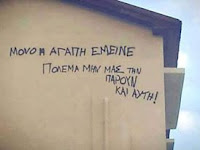 ΜΟΝΟ Η ΑΓΑΠΗ ΕΜΕΙΝΕ
ΠΟΛΕΜΑ ΜΗΝ ΜΑΣ ΤΗΝ
ΠΑΡΟΥΝ
ΚΑΙ ΑΥΤΗ!